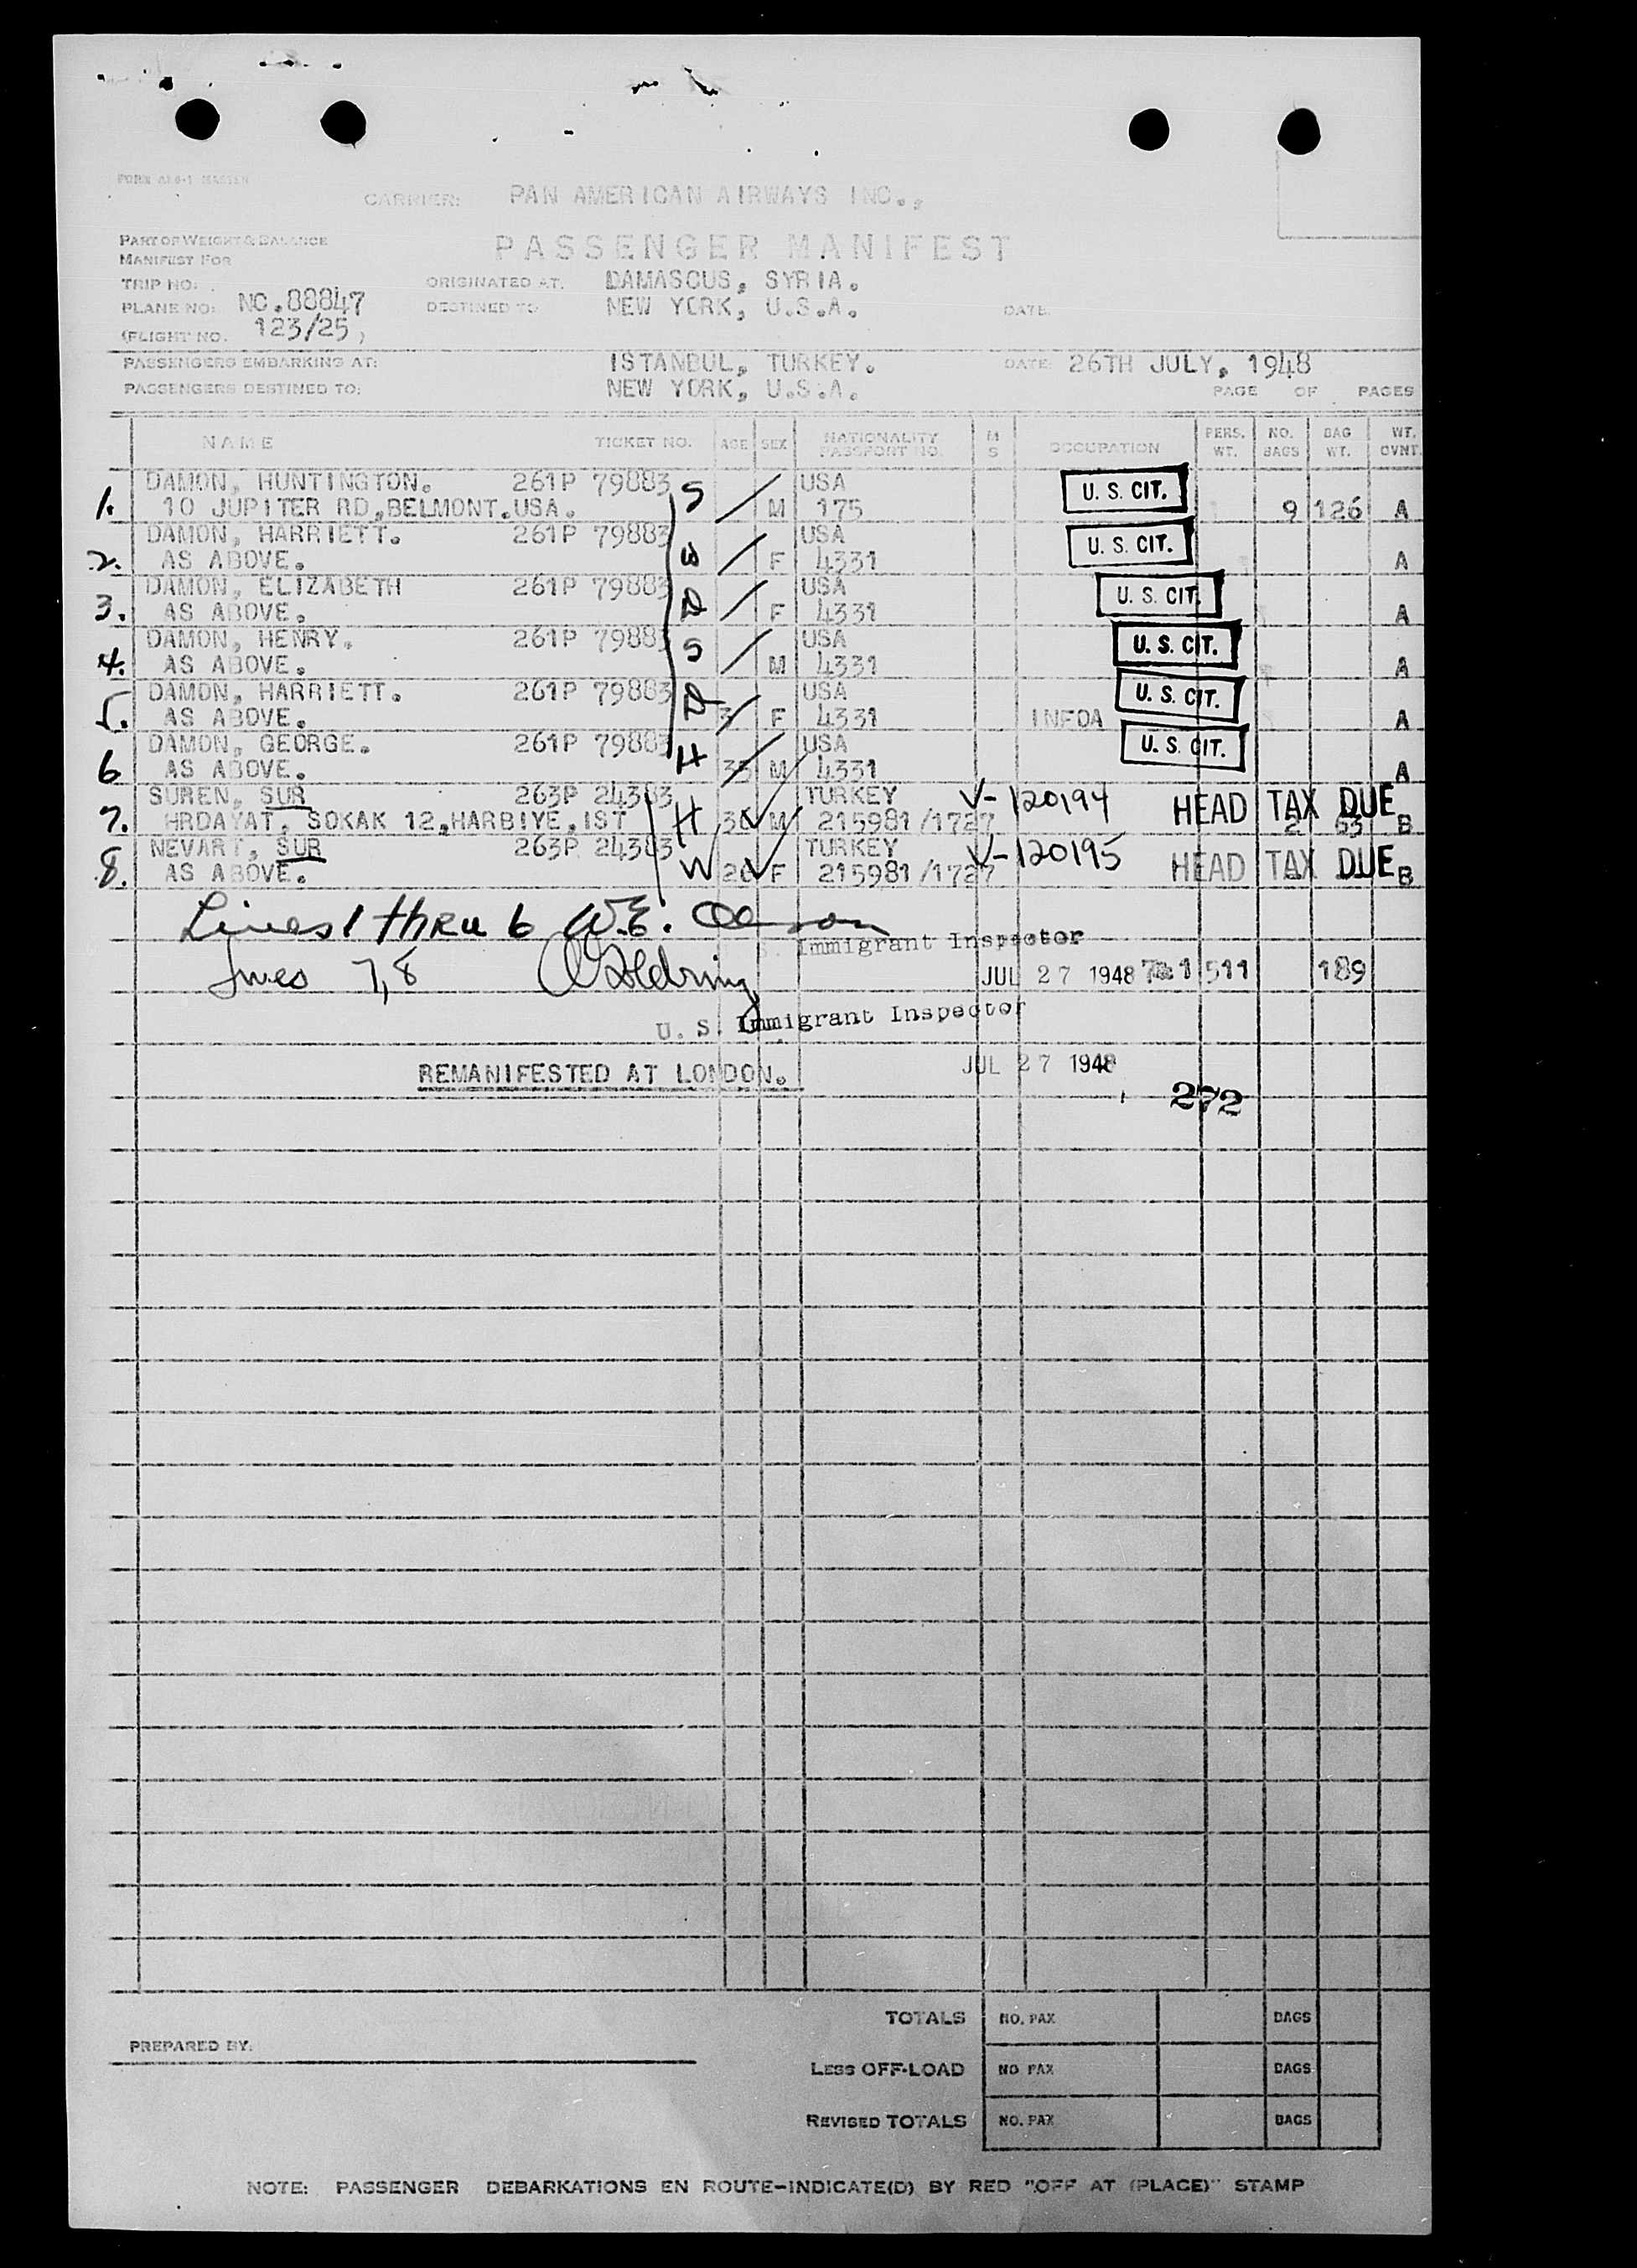 CARRIER: PAN AMERICAN AIRWAYS INC.,
PART OF WEIGHT & BALANCE
MANIFEST FOR
PASSENGER MANIFEST
TRIP NO. ORIGINATED AT. DAMASCUS, SYRIA.
PLANE NO: NC.88847 DESTINED TO NEW YORK, U.S.A. DATE
(FLIGHT NO. 123/25 )
PASSENGERS EMBARKING AT: ISTANBUL, TURKEY. DATE 26TH JULY, 1948
PASSENGERS DESTINED TO: NEW YORK, U.S.A. PAGE OF PAGES
NAME TICKET NO. AGE SEX NATIONALITY PASSPORT NO. M S OCCUPATION PERS. WT. NO. BAGS BAG WT. WT. CVNT.
DAMON, HUNTINGTON. 261P 79883 S USA U. S. CIT.
1. 10 JUPITER RD,BELMONT.USA. M 175 9 126 A
DAMON, HARRIETT. 261P 79883 W USA U. S. CIT.
2. AS ABOVE. F 4331 A
DAMON, ELIZABETH 261P 79883 D USA U. S. CIT.
3. AS ABOVE. F 4331 A
DAMON, HENRY. 261P 79883 S USA U. S. CIT.
4. AS ABOVE. M 4331 A
DAMON, HARRIETT. 261P 79883 D USA U. S. CIT.
5. AS ABOVE. 3 F 4331 INFOA A
DAMON, GEORGE. 261P 79883 H USA U. S. CIT.
6 AS ABOVE. M 4331 A
SUREN, SUR 263P 24383 TURKEY V-120194 HEAD TAX DUE
7. HRDAYAT, SOKAK 12,HARBIYE,IST H M 215981/1727 2 63 B
NEVART, SUR 263P 24383 TURKEY V-120195 HEAD TAX DUE
8. AS ABOVE. W F 215981/1727 B
Lines 1 thru 6 W.E.
Immigrant Inspector
Lines 7,8 JUL 27 1948 511 189
U. S. Immigrant Inspector
REMANIFESTED AT LONDON. JUL 27 1948
272
TOTALS NO. PAX BAGS
PREPARED BY:
LESS OFF-LOAD NO PAX BAGS
REVISED TOTALS NO. PAX BAGS
NOTE: PASSENGER DEBARKATIONS EN ROUTE-INDICATE(D) BY RED "OFF AT (PLACE)" STAMP